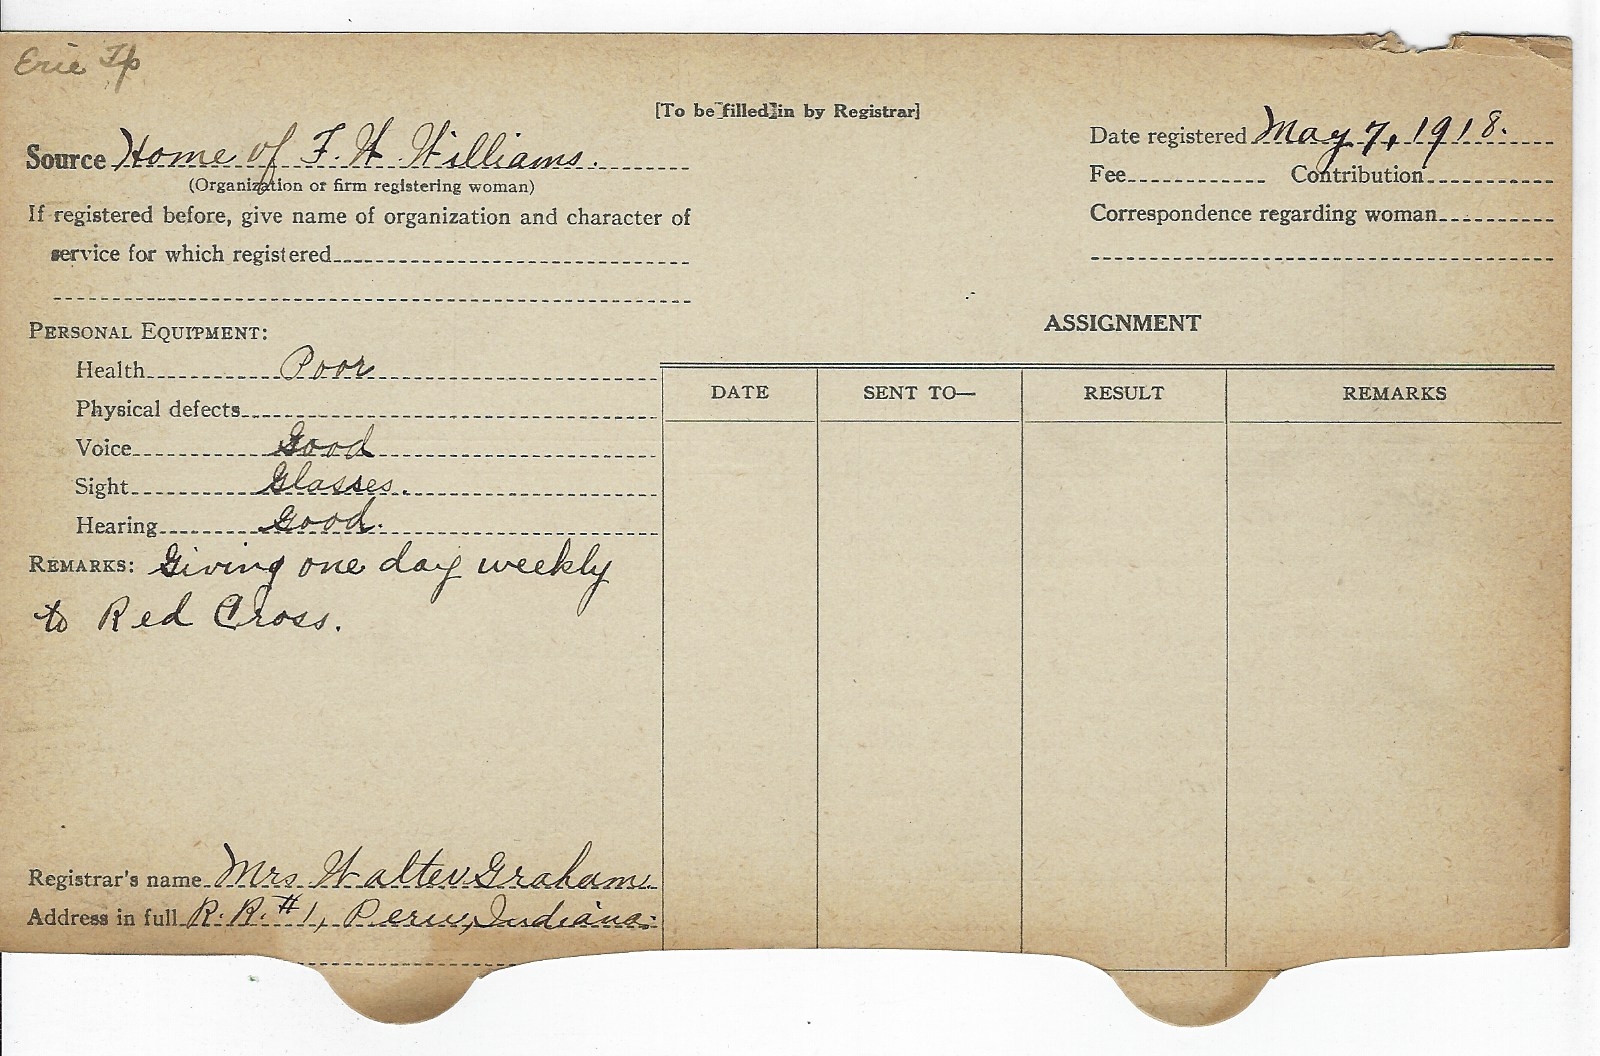 Erie Tp
[To be filled in by Registrar]
Source Home of F. W. Williams.
(Organization or firm registering woman)
If registered before, give name of organization and character of
service for which registered
Date registered May 7, 1918.
Fee Contribution
Correspondence regarding woman
PERSONAL EQUIPMENT:
Health Poor
Physical defects
Voice Good
Sight Glasses.
Hearing Good.
REMARKS: Giving one day weekly
to Red Cross.
Registrar's name Mrs Walter Graham.
Address in full R. R. #1, Peru, Indiana.
ASSIGNMENT
DATE SENT TO— RESULT REMARKS